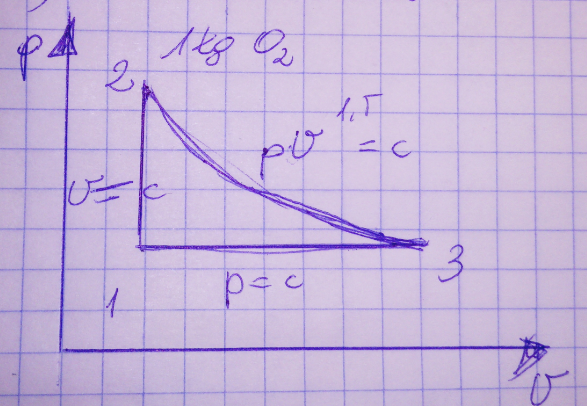 p
1 kg O₂
2
pv^1,5 = c
v = c
3
p = c
1
v